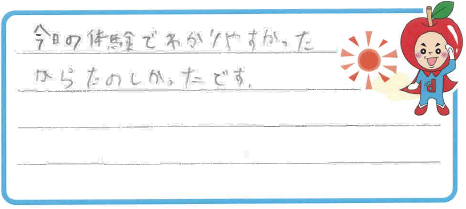 今日の体験でわかりやすかった
からたのしかったです。